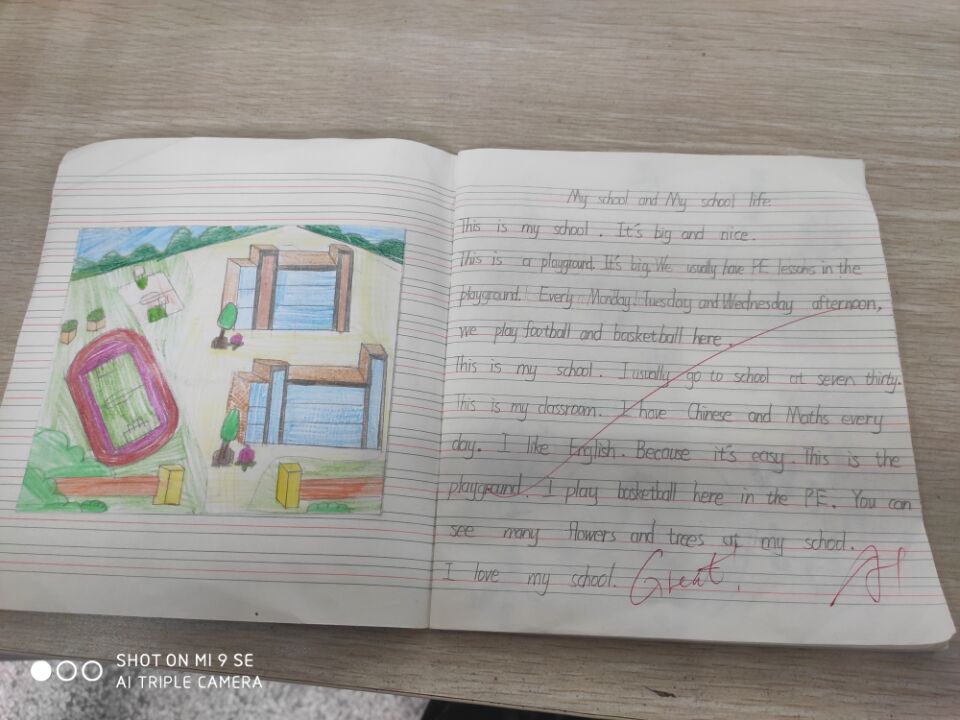 My school and My school life
This is my school. It's big and nice.
This is a playground. It's big. We usually have P.E. lessons in the
playground. Every Monday, Tuesday and Wednesday afternoon,
we play football and basketball here.
This is my school. I usually go to school at seven thirty.
This is my classroom. I have Chinese and Maths every
day. I like English. Because it's easy. This is the
playground. I play basketball here in the P.E. You can
see many flowers and trees at my school.
I love my school. Great!
SHOT ON MI 9 SE
AI TRIPLE CAMERA